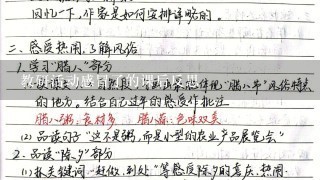 回忆一下,作家是如何安排详略的。
二、感受热闹,了解风俗
1. 学习“腊八”部分
的地方。结合自己过年的感受作批注
腊八粥:食材多 腊八蒜:色味双美
(2) 品读句子“这不是粥,而是小型的农业产品展览会”
2. 品读“除夕”部分
(1) 抓关键词“赶做,到处”等感愿除夕的喜庆、热闹
教研活动感冒了的课后反思